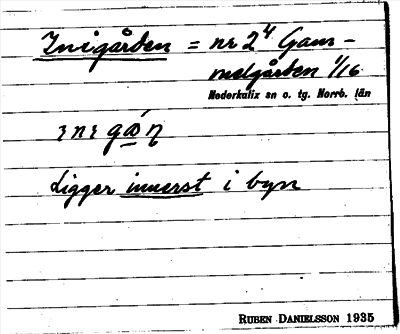 Inigården = nr 2⁴ Gam-
melgården 1/16
Nederkalix sn o. tg. Norrb. län
Ligger innerst i byn
RUBEN DANIELSSON 1935